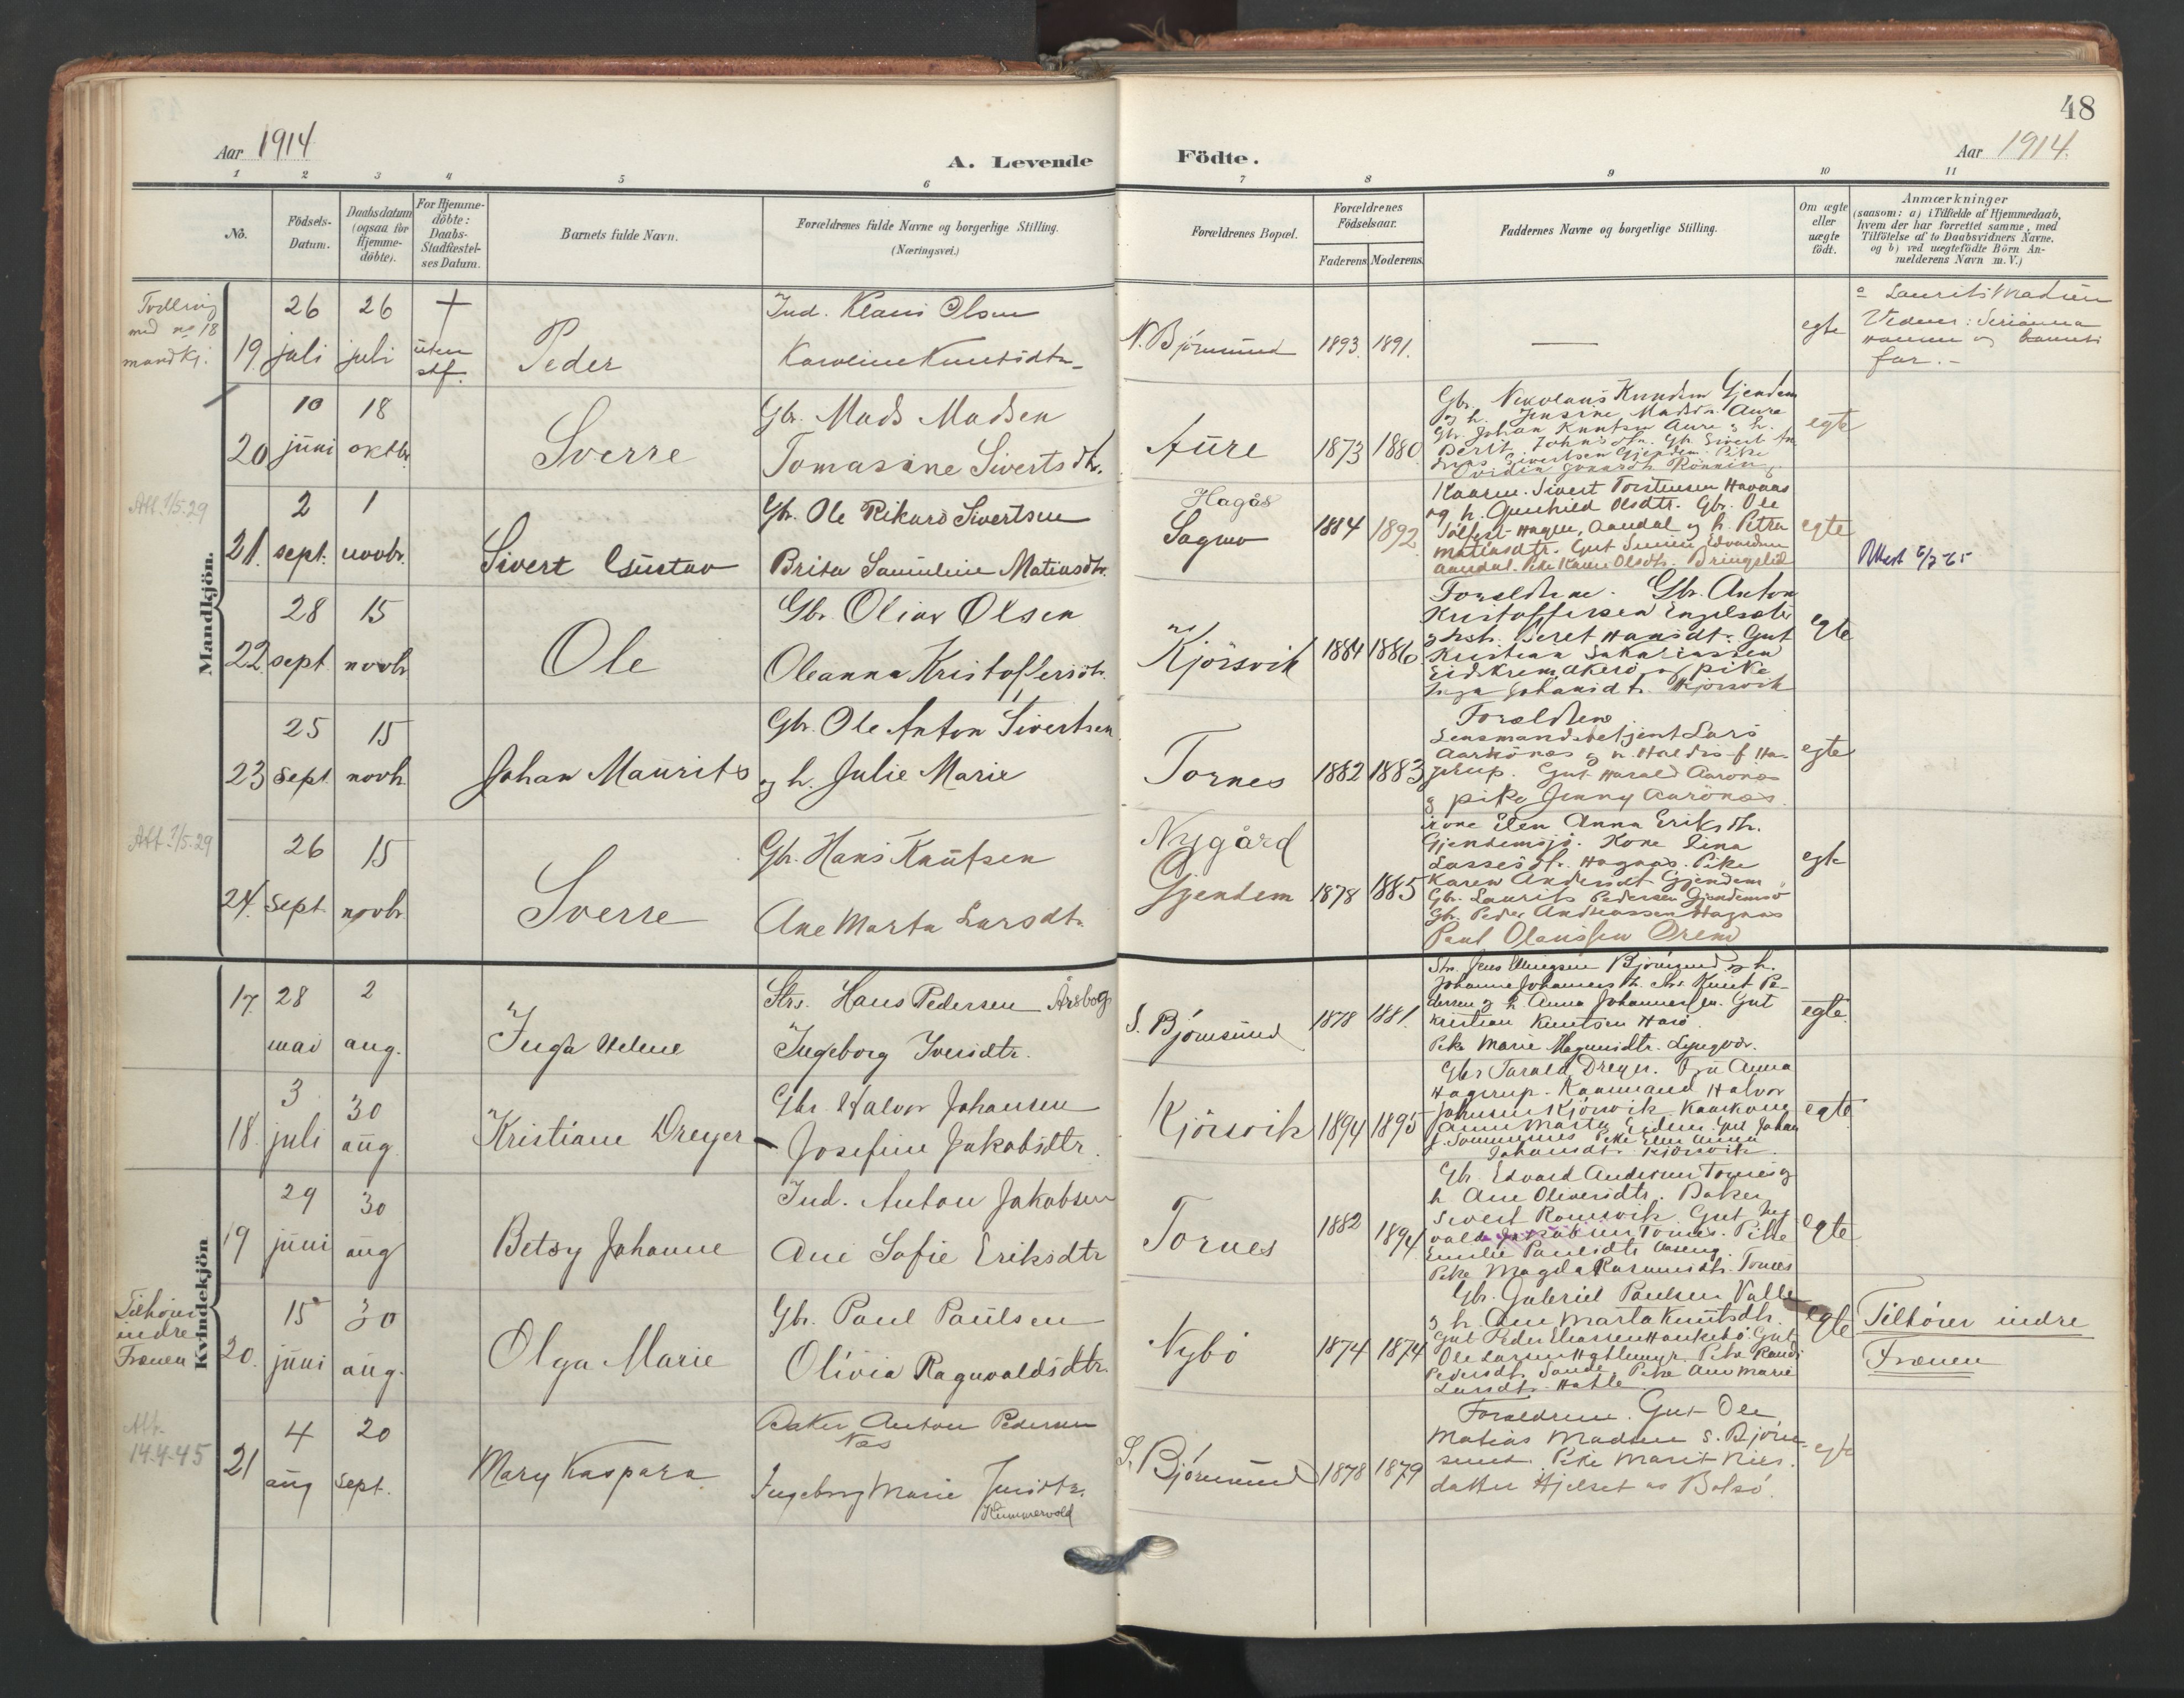 48
Aar 1914
A. Levende
Födte.
Aar 1914.
1 2 3 4 5 6 7 8 9 10 11
No.
Födsels-
Datum.
Daabsdatum
(ogsaa for
Hjemme-
döbte).
For Hjemme-
döbte:
Daabs-
Stadfæstel-
ses Datum.
Barnets fulde Navn.
Forældrenes fulde Navne og borgerlige Stilling.
(Næringsvei.)
Forældrenes Bopæl.
Forældrenes
Födselsaar.
Faderens. Moderens.
Faddernes Navne og borgerlige Stilling.
Om ægte
eller
uægte
födt.
Anmærkninger
(saasom: a) i Tilfælde af Hjemmedaab,
hvem der har forrettet samme, med
Tilföielse af to Daabsvidners Navne,
og b) ved uægtefödte Börn An-
melderens Navn m. V.)
Mandkjön.
Tvilling
med no 18
mandkj.
19. 26 juli
26 juli
+ uten
stf.
Peder
Ind. Klaus Olsen
Karoline Knutsdtr.
N. Björnsund
1893. 1891.
—
egte
a Laurits Madsen
Vidner: Serianna
Hansen og barnets
far.-
20 10 juni
18 oktbr.
Sverre
Gbr. Mads Madsen
Tomasine Sivertsdtr.
Aure
1873 1880
Gbr. Nikolaus Knudsen Gjendem
og h. Jensine Madsdtr. Aure
Gbr. Johan Knutsen Aure og h.
Berit Johnsdtr. Gbr. Sivert An
dreas Sivertsen Gjendem. Pike
egte
Att. 1/5.29
21. 2 sept.
1 novbr.
Sivert Gustav
Gbr. Ole Rikard Sivertsen
Brita Samuline Matiasdtr.
Hagås
Sagmo
1884 1892
Kaarm. Sivert Torstensen Havnaas
og h. Gunhild Olsdtr. Gbr. Ole
Hagen, Aandal og h. Petra
Matiasdtr. Gut Edvardsen
Aandal. Pike Olsdtr. Bringslid
egte
Attest 5/2-65
22. 28 sept.
15 novbr.
Ole
Gbr. Oliver Olsen
Oleanna Kristoffersdtr.
Kjörsvik
1884 1886
Forældrene. Gbr. Anton
Kristoffersen Engelsæter
og hst. Beret Hansdtr. Gut
Kristian Sakariassen
Eidskrem Akerö og pike
Inga Johansdtr. Kjörsvik
egte
23 25 sept.
15 novbr.
Johan Maurits
Gbr. Ole Anton Sivertsen
og h. Julie Marie
Tornes
1882 1883
Forældrene
Lensmandsbetjent Lars
Aarönæs og h. Haldis f. Ha-
gerup. Gut Harald Aarönæs
og pike Jenny Aarönæs.
egte
Att. 1/5.29
24. 26 sept.
15 novbr.
Sverre
Gbr. Hans Knutsen
Ane Marta Larsdtr.
Nygård
Gjendem
1878 1885
kone Elen Anna Eriksdtr.
Gjendemsjö. Kone Lina
Lassesdtr. Hagnas. Pike
Karen Andersdtr Gjendem
Gbr. Laurits Pedersen Gjendemsö
Gbr. Peder Andreassen Hagnas
Paul Olaussen Orem
egte
Kvindekjön
17. 28 mai
2 aug.
Inga Helene
Strs. Hans Pedersen Årsbog
Ingeborg Iversdtr.
S. Björnsund
1878 1881.
Str. Jens Björnsund og h.
Johanne Johannesdtr. Str. Knut Pe-
dersen og h. Anna Johannesdtr. Gut
Kristian Knutsen Harö.
Pike Marie Magnusdtr. Lyngvær.
egte
18. 3 juli
30 aug
Kristiane Dreyer
Gbr. Halvor Johansen
Josefine Jakobsdtr.
Kjörsvik
1894 1895
Gbr Tarald Dreyer. Fru Anna
Hagerup. Kaarmand Halvor
Johansen Kjörsvik Kaarkone
Anne Marta Eidem. Gut Johan
J. Sommernes Pike Elen Anna
Johansdtr. Kjörsvik.
egte
19 29 juni
30 aug
Betsy Johanne
Ind. Anton Jakobsen
Ane Sofie Eriksdtr
Tornes
1882 1894
Gbr. Edvard Andersen Tornes og
h. Ane Oliversdtr. Baker
Sivert Romsvik. Gut Ing
vald Jakobsen Tornes. Pike
Emilie Paulsdtr Aaseng.
Pike Magda Rasmusdtr. Tornes
egte
Tilhörer
indre
Frænen
20. 15 juni
30 aug.
Olga Marie
Gbr. Paul Paulsen
Olivia Ragnvaldsdtr.
Nybö
1874 1874
Gbr. Gabriel Paulsen Valle
og h. Ane Marta Knutsdtr.
Gut Peder Eliassen Haukebö. Gut
Ole Larsen Hatlemyr. Pike Randi
Pedersdtr. Sande. Pike Ane Marie
Larsdtr. Hatle
egte
Tilhörer indre
Frænen
Att.
14-4-45
21 4 aug
20 sept.
Mary Kaspara
Baker Anton Pedersen
Næs
Ingeborg Marie Jensdtr.
Hummervold
S. Björnsund
1878 1879
Forældrene. Gut Ole
Matias Madsen S. Björn-
sund. Pike Marit Niels-
datter Hjelset av Bolsö.
egte